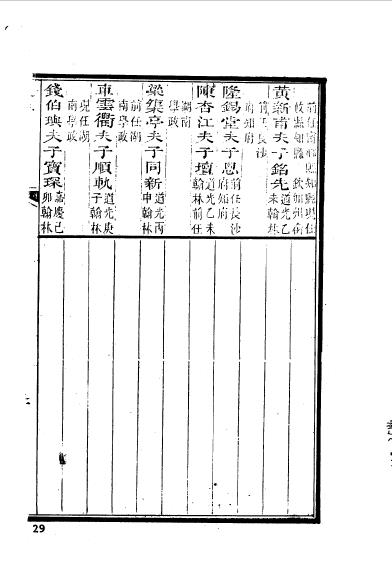 黃新甫夫子銘先道光乙未翰林
前任長沙府知府
隆錫堂夫子恩前任長沙府知府
陳杏江夫子壇道光乙未翰林前任湖南學政
梁集亭夫子同新道光丙申翰林前任湖南學政
車雲衢夫子順軌道光庚子翰林現任湖南學政
錢伯瑜夫子寶琛嘉慶己卯翰林
29